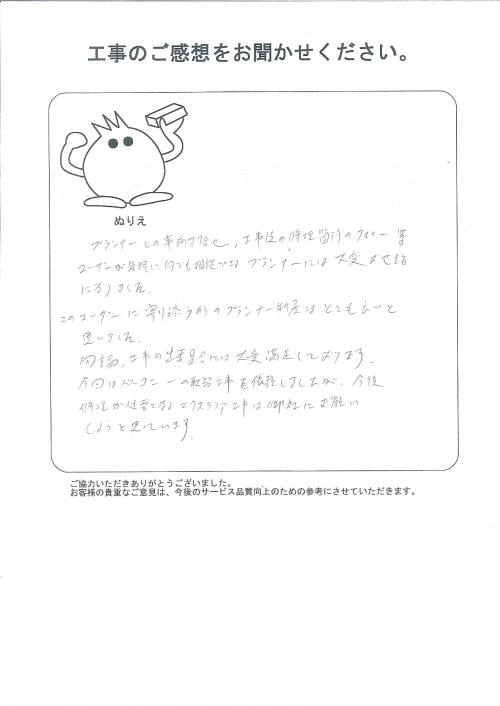 工事のご感想をお聞かせください。
ぬりえ
プランナーとの事前打合せ、工事後の修理箇所のフォロー等
ユーザーが気軽に何でも相談できるプランナーには大変お世話
になりました。
このユーザーに寄り添う形のプランナー制度はとても良いと
思いました。
勿論、工事の出来具合には大変満足しております。
今回はバルコニーの取替工事を依頼しましたが、今後
修理が必要になるエクステリア工事は御社にお願い
しようと思っています。
ご協力いただきありがとうございました。
お客様の貴重なご意見は、今後のサービス品質向上のための参考にさせていただきます。